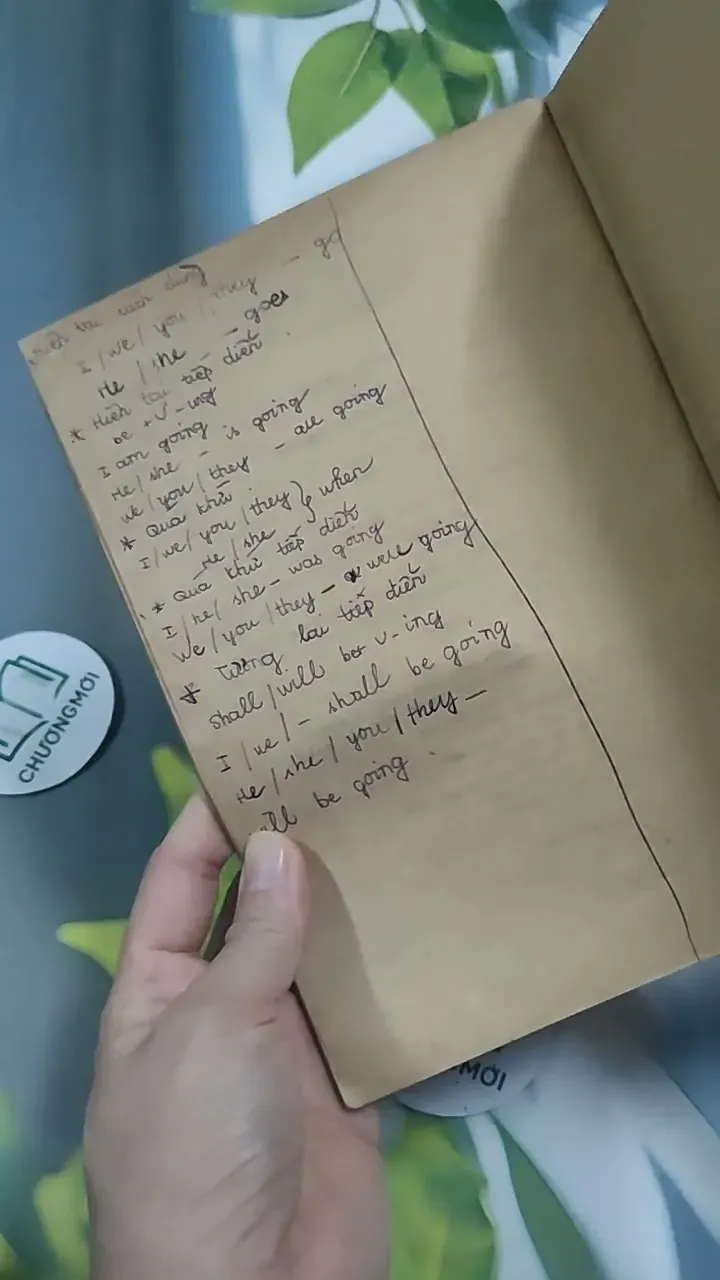 Hiện tại cách dùng
I / we / you / they — go
He / she — goes
* Hiện tại tiếp diễn
be + V-ing
I am going
He / she — is going
we / you / they — are going
* Quá khứ
I / we / you / they
He / she } when
* Quá khứ tiếp diễn
I / he / she — was going
We / you / they — were going
* Tương lai tiếp diễn
shall / will be V-ing
I / we / — shall be going
He / she / you / they —
ill be going.
CHƯƠNGMỚI
MỚI